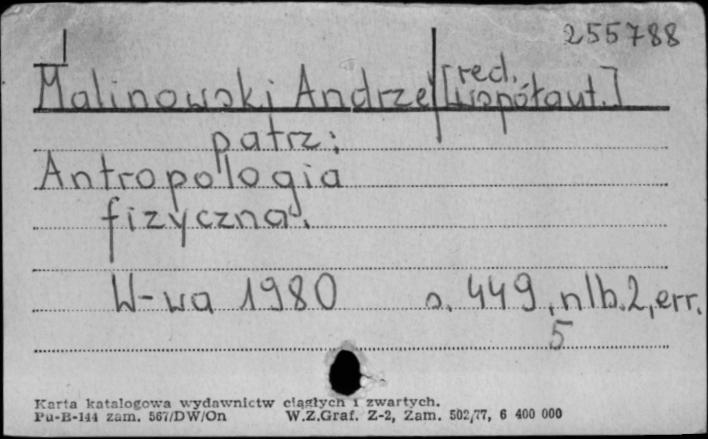 255788
Malinowski Andrzej [red.
współaut.]
patrz:
Antropologia
fizyczna.
W-wa 1980 s. 449, nlb. 2, err.
5
Karta katalogowa wydawnictw ciągłych i zwartych.
Pu-B-144 zam. 567/DW/On W.Z.Graf. Z-2, Zam. 502/77, 6 400 000